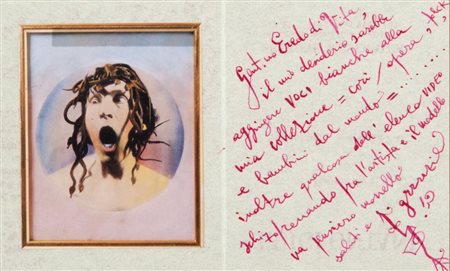 Gent.mo Eredo di Vita
il mio desiderio sarebbe
aggiungere voci bianche alla
mia collezione = cori / opera,
e bambini dal mondo = ........
inoltre qualcosa dall' elenco VIDEO
fra l'artista e il modello
va
saluti e